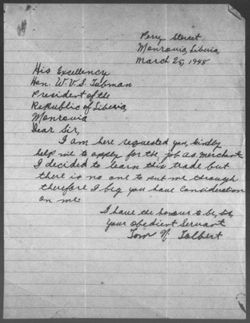 Perry Street
Monrovia, Liberia
March 25, 1948
His Excellency
Hon. W.V.S. Tubman
President of the
Republic of Liberia,
Monrovia
Dear Sir,
I am here requested you kindly
help me to apply for the job as merchant
I decided to learn this trade but
there is no one to put me through
therefore I beg you have consideration
on me.
I have the honour to be, Sir
your obedient Servant
Tom N. Talbert